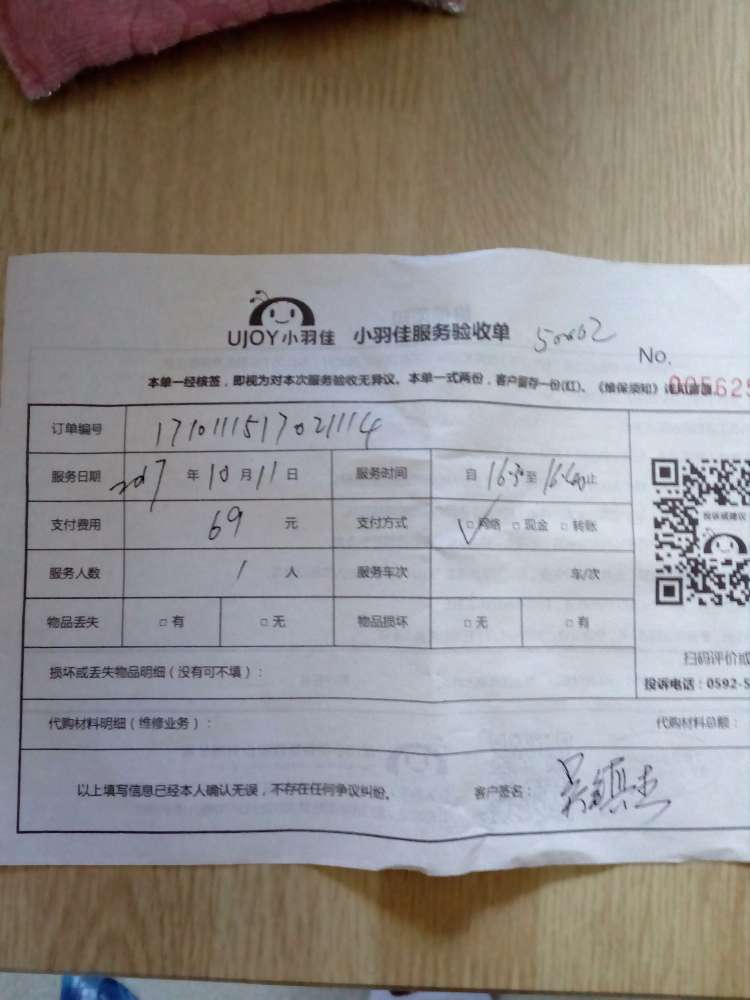 UJOY小羽佳 小羽佳服务验收单 50602
No.
005625
本单一经核签，即视为对本次服务验收无异议。本单一式两份，客户留存一份(红)、《维保须知》详见背面。
订单编号 1710111517021114
服务日期 2017 年 10 月 11 日 服务时间 自 16:30 至 止
支付费用 69 元 支付方式 ☑网络 □现金 □转账
服务人数 1 人 服务车次 车/次
投诉或建议
物品丢失 □有 □无 物品损坏 □无 □有
扫码评价或
损坏或丢失物品明细（没有可不填）：
投诉电话：0592-5
代购材料明细（维修业务）： 代购材料总额：
以上填写信息已经本人确认无误，不存在任何争议纠纷。 客户签名： 吴镇杰